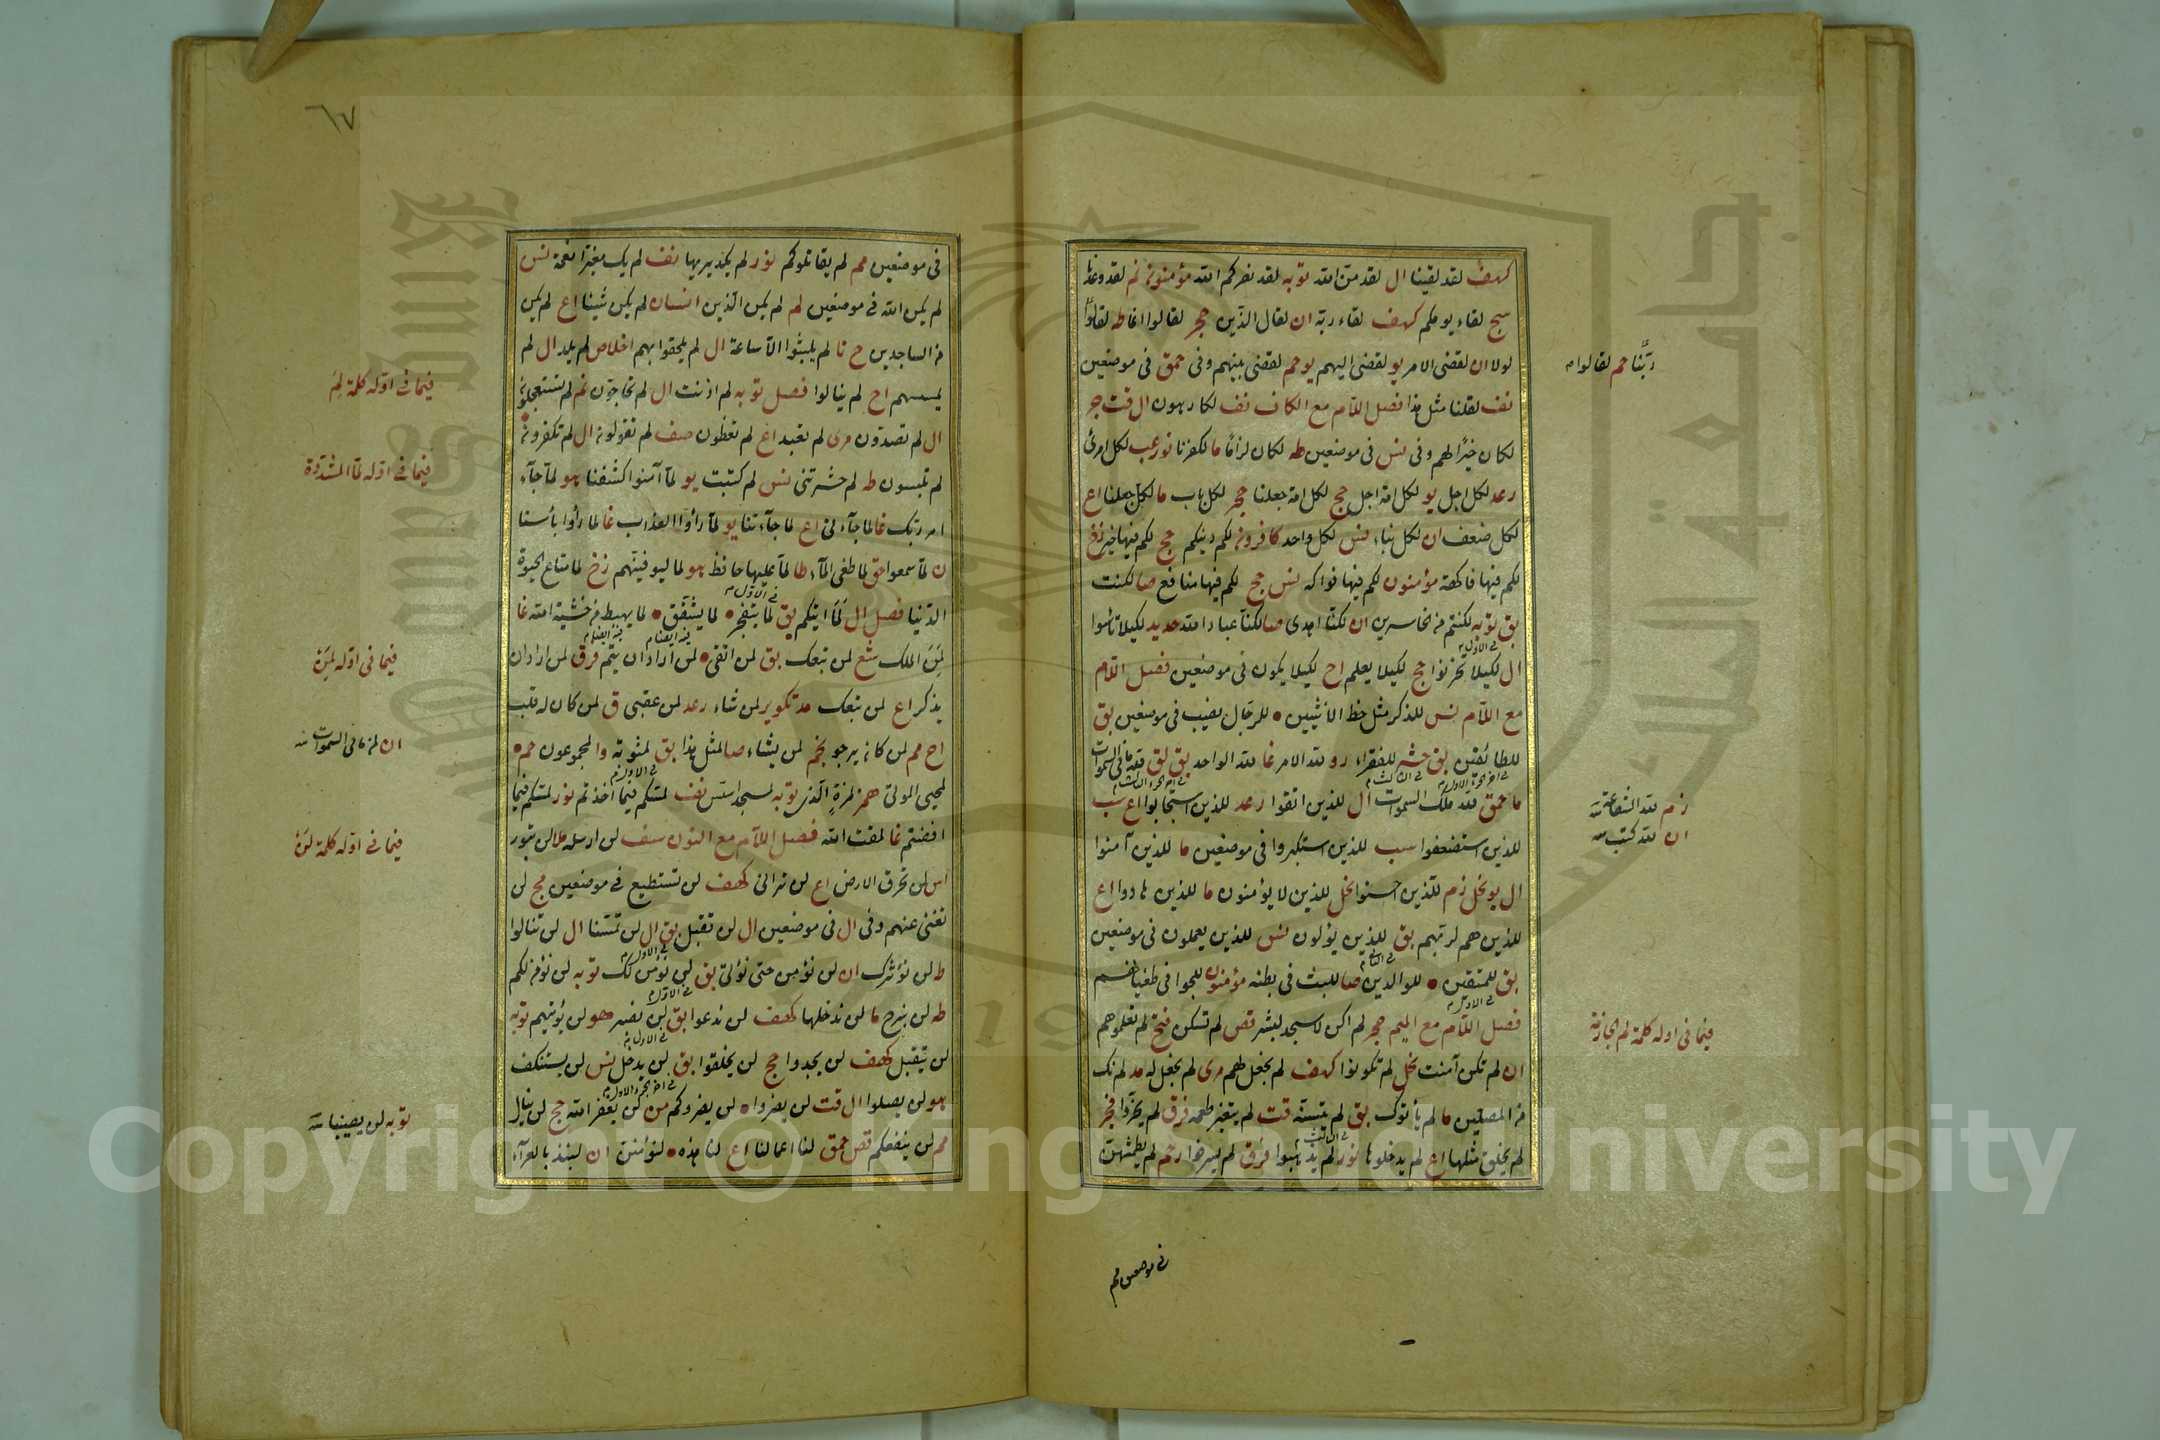 كهف لقد لقينا ال لقد من الله توبه لقد نصركم الله مؤمنون نم لقد وعدنا
سج لقاء يومكم كهف لقاء ربه ان لقال الذين حجر لقالوا انما طه لقالوا
لولا ان لقضى الامر يو لقضى اليهم يو حم لقضى بينهم وفى حمق فى موضعين
نف لقلنا مثل هذا فصل اللام مع الكاف نف لكارهون ال قت حر
لكان خيرا لهم وفى نس فى موضعين طه لكان لزاما ما لكفرنا نور عب لكل امرئ
رعد لكل اجل يو لكل امة اجل حج لكل امة جعلنا حجر لكل باب ما لكل جعلنا اع
لكل ضعف ان لكل نباء نس لكل واحد كافرون لكم دينكم حج لكم فيها خير زخ
لكم فيها فاكهة مؤمنون لكم فيها فواكه نس حج لكم فيها منافع صا لكنت
بق توبه لكنتم من الخاسرين ان لكنا اهدى صا لكنا عباد الله حديد لكيلا تاسوا
ال لكيلا تحزنوا حج لكيلا يعلم اح لكيلا يكون فى موضعين فصل اللام
مع اللام نس للذكر مثل حظ الأنثيين • للرجال نصيب فى موضعين بق
للطائفين بق حشر للفقراء رو لله الامر غا لله الواحد بق لق لله ما فى السموات
ما حمق لله ملك السموات ال للذين اتقوا رعد للذين استجابوا اع سب
للذين استضعفوا سب للذين استكبروا فى موضعين ما للذين آمنوا
ال يو نحل زم للذين احسنوا نحل للذين لا يؤمنون ما للذين هادوا اع
للذين هم لربهم بق للذين يؤلون نس للذين يعملون فى موضعين
بق للمتقين • للوالدين صا للبث فى بطنه مؤمنون للجوا فى طغيانهم
فصل اللام مع الميم حجر لم اكن لاسجد لبشر قص لم تسكن فتح لم تعلموهم
ان لم تكن آمنت نحل لم تكونوا كهف لم نجعل لهم مرى لم نجعل له مد لم نك
من المصلين ما لم يأتوك بق لم يتسنه قت لم يتغير طعمه فرق لم يخروا فجر
لم يخلق مثلها اع لم يدخلوها نور لم يذهبوا فرق لم يسرفوا رحم لم يطمثهن
ربنا حم لقالوا
زم لله الشفاعة
ان لله كتب
فيما فى اوله كلمة لم الجازمة
فى موضعين مم
٦٧
فى موضعين مم لم يقاتلوكم نور لم يكد يريها نف لم يك مغيرا نعمة نس
لم يكن الله فى موضعين لم لم يكن الذين انسان لم يكن شيئا اع لم يكن
من الساجدين ح نا لم يلبثوا الا ساعة ال لم يلحقوا بهم اخلاص لم يلد ال لم
يمسسهم اح لم ينالوا فصل توبه لم اذنت ال لم تحاجون نم لم تستعجلون
ال لم تصدون مرى لم تعبد اع لم تعظون صف لم تقولون ال لم تكفرون
لم تلبسون طه لم حشرتنى نس لم كتبت يو لما آمنوا كشفنا هو لما جاء
امر ربك غا لما جاءنى اع لما جاءتنا يو لما رأوا العذاب غا لما رأوا بأسنا
ن لما سمعوا حق لما طغى الماء طا لما عليها حافظ هو لما ليوفينهم زخ لما متاع الحيوة
الدنيا فصل ال لما اتيتكم بق لما يتفجر • لما يشقق • لما يهبط من خشية الله غا
لمن الملك شع لمن تبعك بق لمن اتقى • لمن اراد ان يتم فرق لمن اراد ان
يذكر اع لمن تبعك مد تكوير لمن شاء رعد لمن عقبى ق لمن كان له قلب
اح مم لمن كان يرجو نجم لمن يشاء صا لمثل هذا بق لمثوبة وا لمجموعون حم •
لمحيى الموتى همز لمزة الذى توبه لمسجد اسس نف لمسكم فيما اخذتم نور لمسكم فيما
افضتم غا لمقت الله فصل اللام مع النون سف لن ارسله علا لن تبور
اس لن تخرق الارض اع لن ترانى كهف لن تستطيع فى موضعين مج لن
تغنى عنهم وفى ال فى موضعين ال لن تقبل بق ال لن تمسنا ال لن تنالوا
طه لن نؤثرك ان لن نؤمن حتى نؤتى بق لن نؤمن لك توبه لن نؤمن لكم
طه لن نبرح ما لن ندخلها كهف لن ندعوا بق لن نصبر هو لن يؤتيهم توبه
لن يتقبل كهف لن يجدوا حج لن يخلقوا بق لن يدخل نس لن يستنكف
هو لن يصلوا ال قت لن يضروا • لن يضروكم من لن يغفر الله حج لن ينال
مم لن ينفعكم قص حمق لنا اعمالنا اع لنا هذه • لنؤمنن ان لنبذ بالعراء
فيما فى اوله كلمة لم
فيما فى اوله لما المشددة
فيما فى اوله لمن
ان لمن ما فى السموات
فيما فى اوله كلمة لن
توبه لن يصيبنا
Copyright © King Saud University
King Saud University
جامعة الملك سعود
19